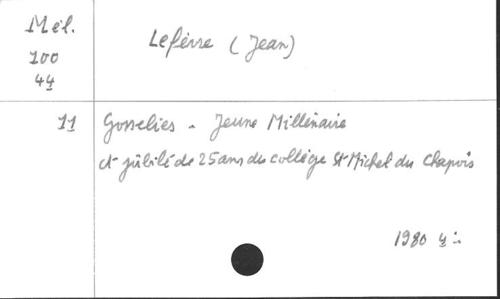 Mél.
100
44
Lefèvre (Jean)
11 Gosselies - Jeune Millénaire
et jubilé de 25 ans du collège St Michel du Chapois
1980 4º: